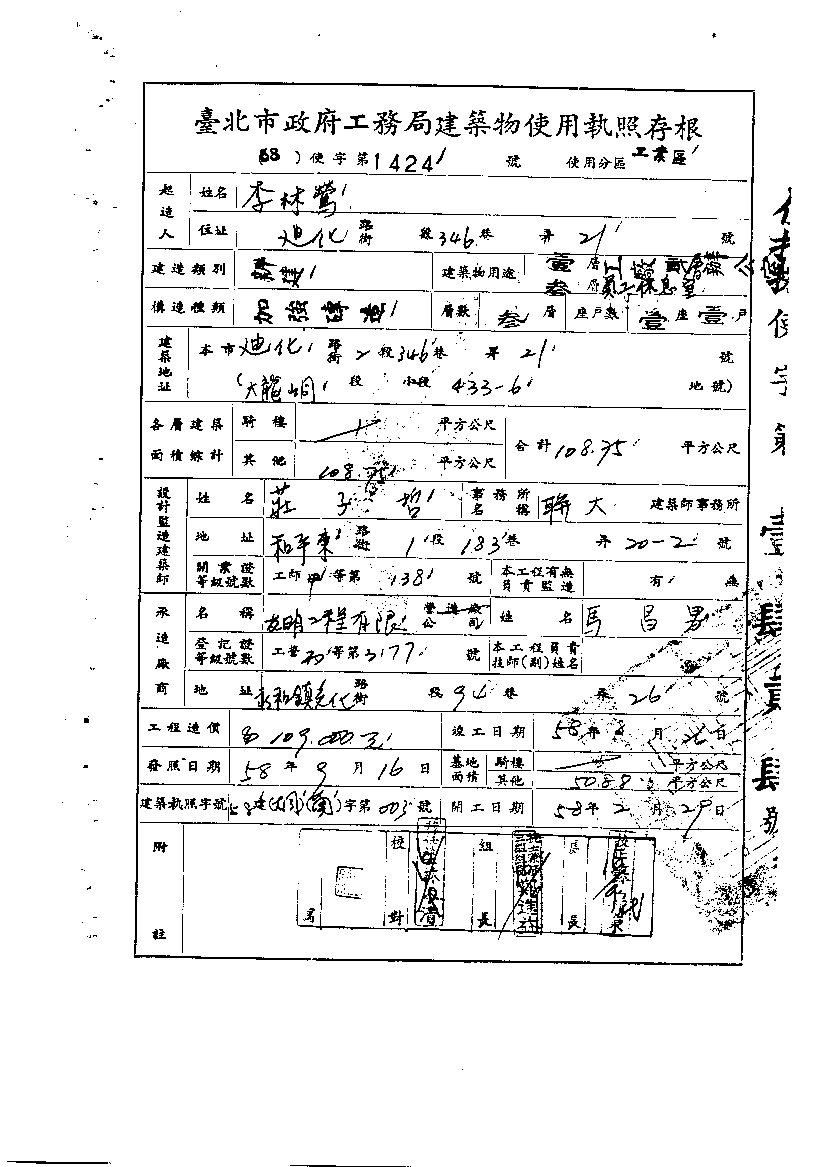 臺北市政府工務局建築物使用執照存根
58)使字第1424號 使用分區工業區
起造人 姓名 李林鶯
住址 迪化路街 段346巷 弄21 號
建造類別 新建 建築物用途 壹層工廠貳層辦公室
叁層員工休息室
構造種類 加強磚造 層數 叁層 座戶數 壹座壹戶
建築地址 本市迪化路街2段346巷 弄21 號
(大龍峒 段 小段 433-6 地號)
各層建築面積綜計 騎樓 平方公尺 合計108.75平方公尺
其他 108.75 平方公尺
設計監造建築師 姓名 莊子哲 事務所名稱 聯大 建築師事務所
地址 和平東路街1段183巷 弄20-2號
開業證等級號數 工師甲等第1381號 本工程有無負責監造 有 無
承造廠商 名稱 友明工程有限公司 營造廠 姓名 馬昌男
登記證等級號數 工營丙等第3177號 本工程負責技師(副)姓名
地址 永和鎮文化路街 段94巷 弄26號
工程造價 109.000元 竣工日期 58年8月26日
發照日期 58年9月16日 基地面積 騎樓 平方公尺
其他 50.88 平方公尺
建築執照字號 58建 字第003號 開工日期 58年2月29日
附註
局 校對 組長 長
使字第壹肆貳肆號